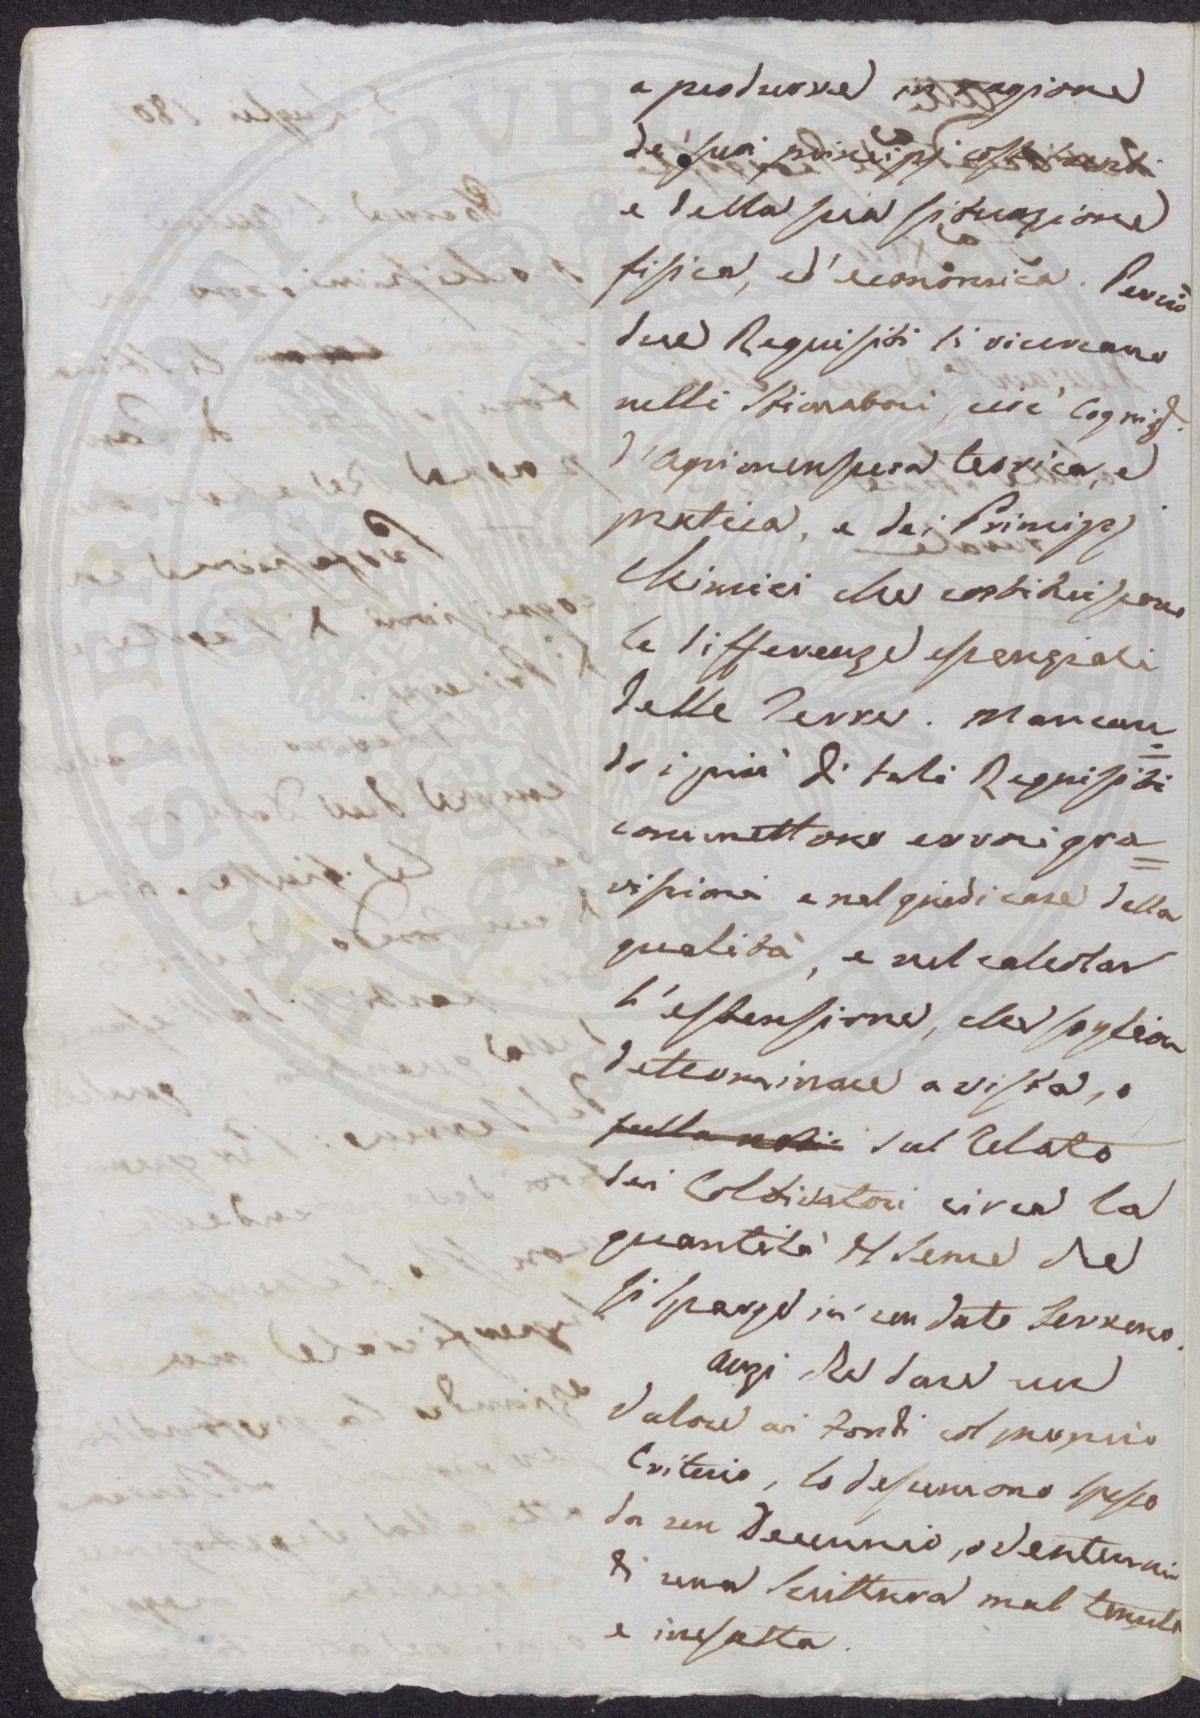 a produrre in ragione
de' suoi principj costituenti
e della sua situazione
fisica, ed' economica. Perciò
due Requisiti si ricercano
nelli Stimatori, cioè Cogniz.
d'agrimensura teorica, e
pratica, e dei Principj
Chimici che costituiscono
le differenze essenziali
delle Terre. Mancan=
do i più di tali Requisiti
commettono errori gra=
vissimi e nel giudicare della
qualità, e nel calcolar
l'estensione, che sogliono
determinare a vista, o
sul relato
dei Coltivatori circa la
quantità di seme che
si sparge in un dato terreno.
Anzi che dare un
valore ai Fondi col proprio
Criterio, lo desumono spesso
da un Decennio, o Ventennio
di una Scrittura mal tenuta
e inesatta.